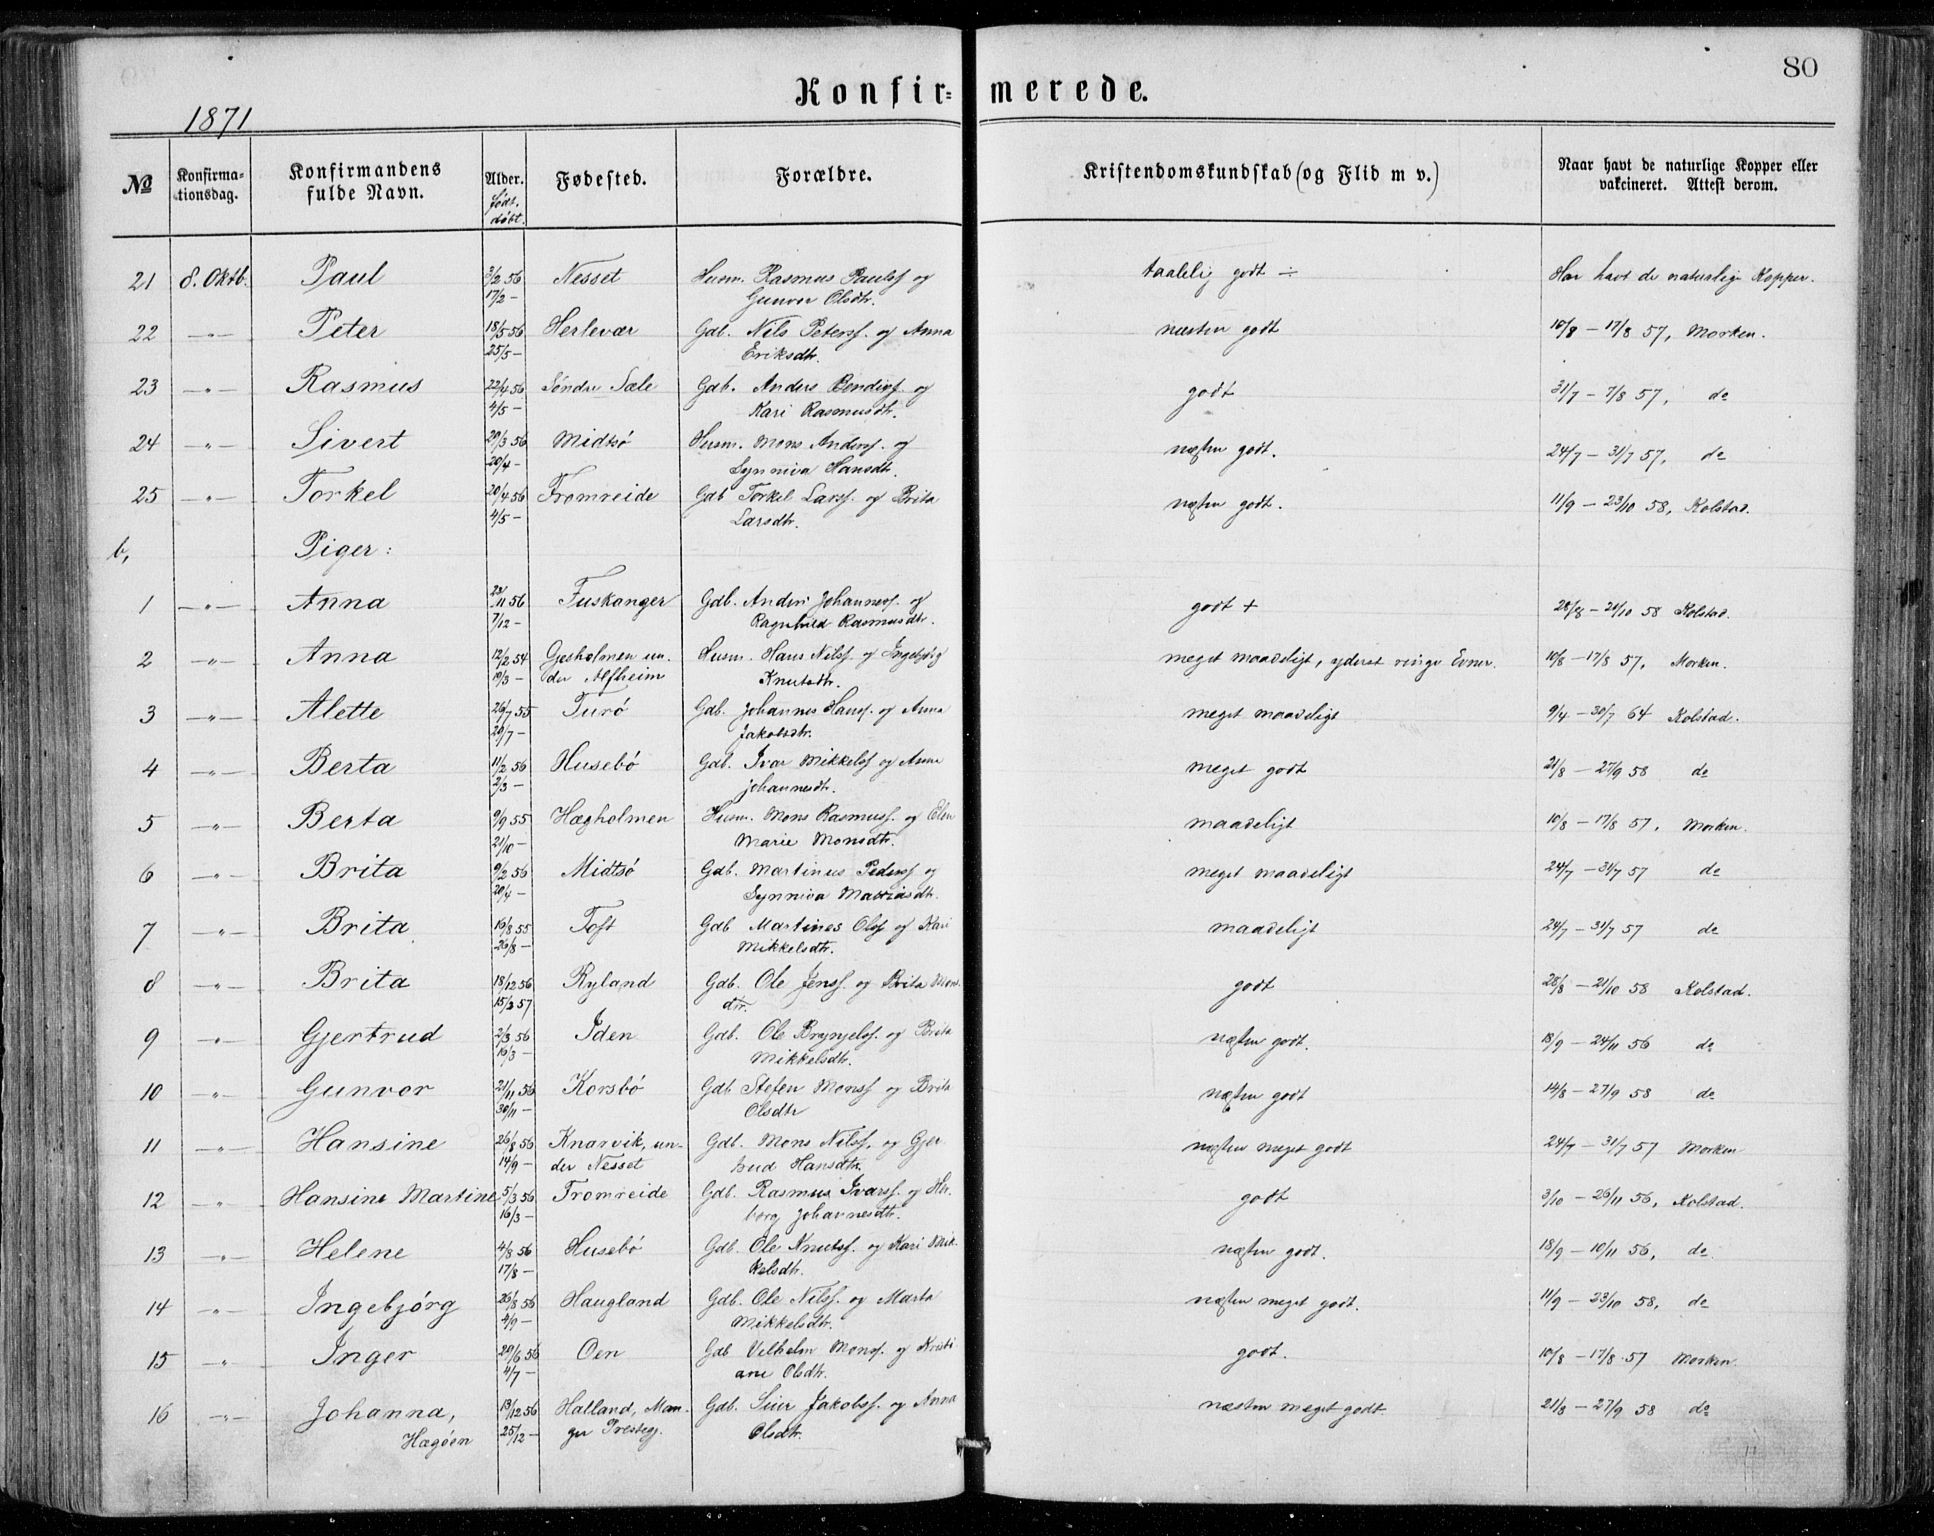 80
Konfirmerede.
1871
No Konfirmationsdag. Konfirmandens fulde Navn. Alder. Födt. döbt. Fødested. Forældre. Kristendomskundskab (og Flid m v.) Naar havt de naturlige Kopper eller vakcineret. Attest derom.
21 8. Oktb. Paul 3/2 56 Nesset Husm. Rasmus Paulsf og taalelig godt ÷ Har havt de naturlige Kopper.
17/2 – Gunvor Olsdtr.
22 –„– Peter 18/5 56 Herlevær Gdb. Nils Petersf. og Anna næsten godt 10/8 – 17/8 57, Morken.
25/5 – Eriksdtr.
23 –„– Rasmus 22/4 56 Søndre Sæle Gdb. Anders Bendixf og godt 31/7 – 7/8 57, do
4/5 – Kari Rasmusdtr.
24 –„– Sivert 29/3 56 Midtsö Husm. Mons Andersf. og næsten godt. 24/7 – 31/7 57, do
20/4 – Synniva Hansdtr.
25 –„– Torkel 20/4 56 Fromreide Gdb Torkel Larsf. og Brita næsten godt. 11/9 – 23/10 58, Kolstad.
4/5 – Larsdtr.
b, Piger:
1 –„– Anna 23/11 56 Fuskanger Gdb. Anders Johannesf. og godt + 28/8 – 21/10 58 Kolstad.
7/12 – Ragnhild Rasmusdtr.
2 –„– Anna 12/2 54 Gjesholmen un- Husm. Hans Nilsf. og Ingebjörg meget maadeligt, yderst ringe Evner. 10/8 – 17/8 57, Morken.
19/3 – der Alfheim Knutsdtr.
3 –„– Alette 26/7 55 Turö Gdb. Johannes Hansf. og Anna meget maadeligt 9/4 – 30/7 64 Kolstad.
29/7 – Jakobsdtr.
4 –„– Berta 11/2 56 Husebö Gdb. Ivar Mikkelsf og Anna meget godt 21/8 – 27/9 58 do
2/3 – Johannesdtr.
5 –„– Berta 9/9 55 Hægholmen Husm. Mons Rasmusf. og Elen maadeligt 10/8 – 17/8 57, Morken.
21/10 – Marie Monsdtr.
6 –„– Brita 9/2 56 Midtsö Gdb. Martinus Pedersf og meget maadeligt 24/7 – 31/7 57 do
20/4 – Synniva Mattiasdtr.
7 –„– Brita 16/8 55 Toft Gdb Martines Olsf og Kari maadeligt 24/7 – 31/7 57 do
26/8 – Mikkelsdtr.
8 –„– Brita 18/12 56 Ryland Gdb. Ole Jensf. og Brita Mons- godt 28/8 – 21/10 58 Kolstad.
15/3 57 dtr.
9 –„– Gjertrud 2/3 56 Iden Gdb. Ole Brynjelsf. og Brita næsten godt. 18/9 – 24/11 56 do
16/3 – Mikkelsdtr.
10 –„– Gunvor 21/11 56 Korsbö Gdb Stefen Monsf og Brita næsten godt 14/8 – 27/9 58 do
30/11 – Olsdtr
11 –„– Hansine 26/8 56 Knarvik, un- Gdb. Mons Nilsf. og Gjer næsten meget godt 24/7 – 31/7 57 Morken
14/9 – der Nesset trud Hansdtr.
12 –„– Hansine Martine 5/3 56 Fromreide Gdb. Rasmus Ivarsf. og Her- godt 3/10 – 26/11 56, Kolstad.
16/3 – borg Johannesdtr.
13 –„– Helene 4/8 56 Husebö Gdb. Ole Knutsf. og Kari Mik- næsten godt. 18/9 – 10/11 56, do
17/8 – kelsdtr.
14 –„– Ingebjörg 26/8 56 Haugland Gdb. Ole Nilsf. og Marta næsten meget godt. 11/9 – 23/10 58, do
4/9 – Mikkelsdtr.
15 –„– Inger 29/6 56 Oen Gdb Vilhelm Monsf. og Kristi godt. 10/8 – 17/8 57 Morken.
4/7 – ane Olsdtr.
16 –„– Johanna, 13/12 56 Halland, Man- Gdb. Siur Jakobsf. og Anna næsten meget godt 21/8 – 27/9 58 do
Hægöen 25/12 – ger Prestegj. Olsdtr.